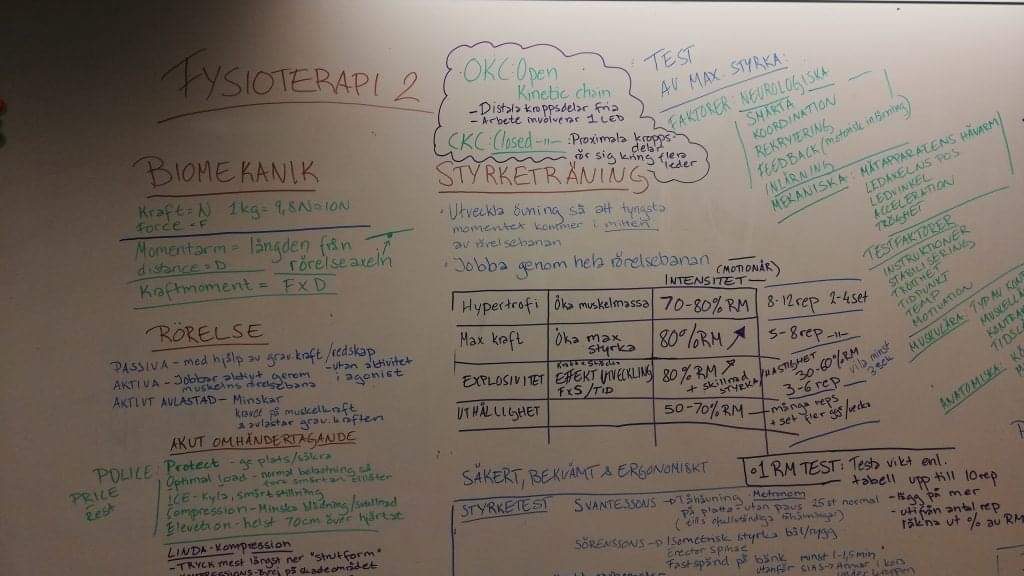 FYSIOTERAPI 2
OKC: Open
Kinetic chain
- Distala kroppsdelar fria
- Arbete involverar 1 LED
CKC: Closed -11- : Proximala kropps-
delar
rör sig kring flera
leder
BIOMEKANIK
Kraft = N 1kg = 9,8N ≈ 10N
force = F
Momentarm = längden från
distance = D rörelseaxeln
Kraftmoment = F x D
RÖRELSE
PASSIVA - med hjälp av grav.kraft/redskap
- utan aktivitet
i agonist
AKTIVA - Jobbar aktivt genom
muskelns rörelsebana
AKTIVT AVLASTAD - Minskar
kravet på muskelkraft
& avlastar grav.kraften
AKUT OMHÄNDERTAGANDE
POLICE
PRICE
Rest
Protect - plats/säkra
Optimal load - normal belastning så
fort smärtan
ICE - Kyla, smärtstillning
Compression - Minska blödning/svullnad
Elevation - helst 70cm över hjärtat
LINDA - Kompression
- TRYCK mest längst ner "strutform"
på skadeområdet
STYRKETRÄNING
• Utveckla övning så att tyngsta
momentet kommer i mitten
av rörelsebanan
• Jobba genom hela rörelsebanan
(MOTIONÄR)
INTENSITET
Hypertrofi Öka muskelmassa 70-80% RM 8-12 rep 2-4 set
Max kraft Öka max styrka 80% RM 5-8 rep -11-
EXPLOSIVITET EFFEKTUTVECKLING F x S / TID 80% RM + skillnad styrka HASTIGHET 30-60% RM 3-6 rep vila minst
UTHÅLLIGHET 50-70% RM många reps
+ set fler
SÄKERT, BEKVÄMT & ERGONOMISKT
• 1 RM TEST: Testa vikt enl.
tabell upp till 10 rep
- lägg på mer
- utifrån antal rep
räkna ut % av RM
STYRKETEST
SVANTESSONS → Tåhävning Metronom
på platta - utan paus 25 st normal
SÖRENSSONS → Isometrisk styrka bål/rygg
Erector spinae
Fastspänd på bänk minst 1-1,5 min
utanför SIAS → Armar i kors
TEST
AV MAX. STYRKA:
FAKTORER: NEUROLOGISKA
SMÄRTA
KOORDINATION
REKRYTERING
FEEDBACK (motorisk inlärning)
INLÄRNING
MEKANISKA: MÄTAPPARATENS HÄVARM
LEDAXELNS POS.
LEDVINKEL
ACCELERATION
TRÖGHET
TESTFAKTORER
INSTRUKTIONER
STABILISERING
TRÖTTHET
TIDPUNKT
TEMP
MOTIVATION
MUSKULÄRA:
ANATOMISKA: